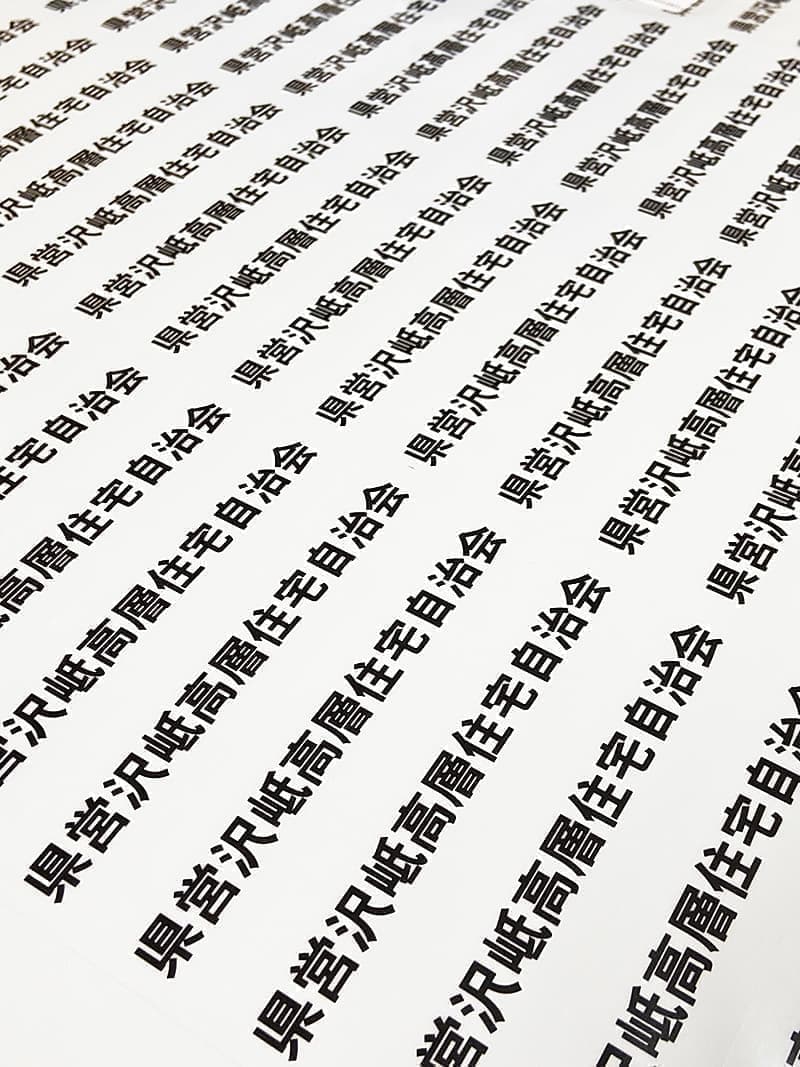 県営沢岻高層住宅自治会
県営沢岻高層住宅自治会
県営沢岻高層住宅自治会
県営沢岻高層住宅自治会
県営沢岻高
住宅自治会
層住宅自治会
高層住宅自治会
沢岻高層住宅自治会
県営沢岻高層住宅自治会
県営沢岻高層住宅自治会
県営沢岻高層住宅自治会
県営沢岻高層住宅自治会
県営沢岻高層住宅自治会
県営沢岻高層住宅自治会
県営沢岻高層住宅自治会
県営沢岻高層住宅自治
県営沢岻
治会
宅自治会
高層住宅自治会
沢岻高層住宅自治会
県営沢岻高層住宅自治会
県営沢岻高層住宅自治会
県営沢岻高層住宅自治会
営沢岻高層住宅自治会
沢岻高層住宅自治